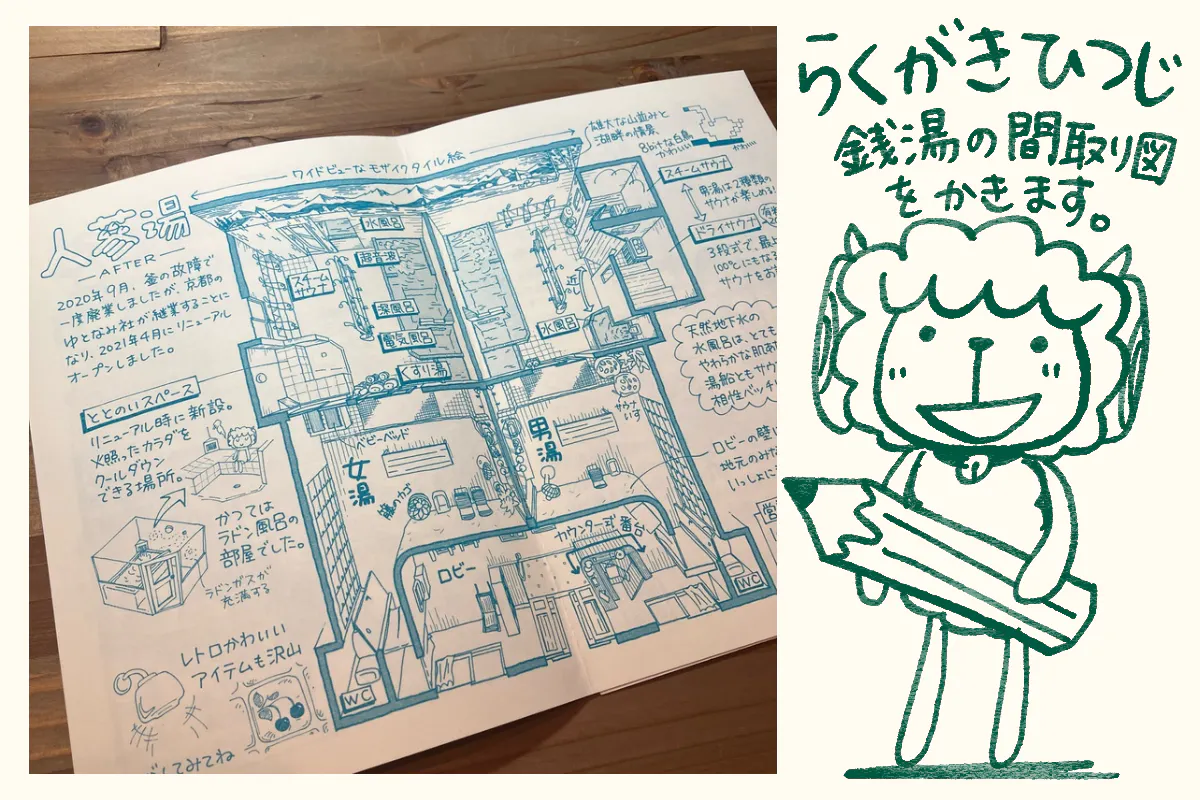 人蔘湯
AFTER
2020年9月、釜の故障で
一度廃業しましたが、京都の
ゆとなみ社が継業することに
なり、2021年4月にリニューアル
オープンしました。
ととのいスペース
リニューアル時に新設。
火照ったカラダを
クールダウン
できる場所。
かつては
ラドン風呂の
部屋でした。
ラドンガスが
充満する
レトロかわいい
アイテムも沢山
してみてね
ワイドビューなモザイクタイル絵
水風呂
超音波
スチーム
サウナ
深風呂
電気風呂
くすり湯
近し
水風呂
サウナ
いす
ベビーベッド
女湯
男湯
籐のカゴ
ロビー
カウンター式番台
WC
WC
雄大な山並みと
湖畔の情景。
8bitな白鳥
かわいい
スチームサウナ
男湯は2種類の
サウナが楽しめる
ドライサウナ
3段式で、最上
100℃にもなる
サウナをお
天然地下水の
水風呂は、とても
やわらかな肌あ
湯船ともサウ
相性バッチリ
ロビーの壁
地元のみな
いっしょに
営
らくがきひつじ
銭湯の間取り図
をかきます。